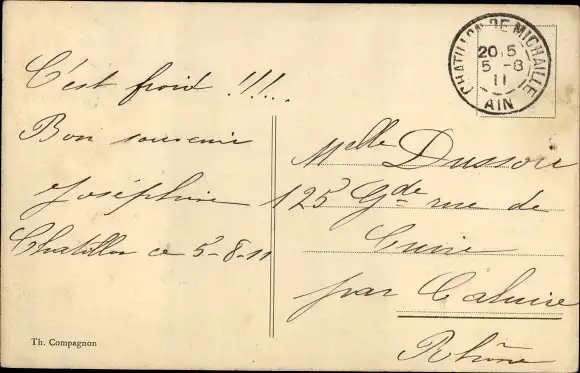 C'est froid !!!...
Bon souvenir
Joséphine
Chatillon ce 5-8-11
Th. Compagnon
CHATILLON DE MICHAILLE
20.5
5 -8
11
AIN
Melle
125 Gde rue de
Cuire
par Caluire
Rhône